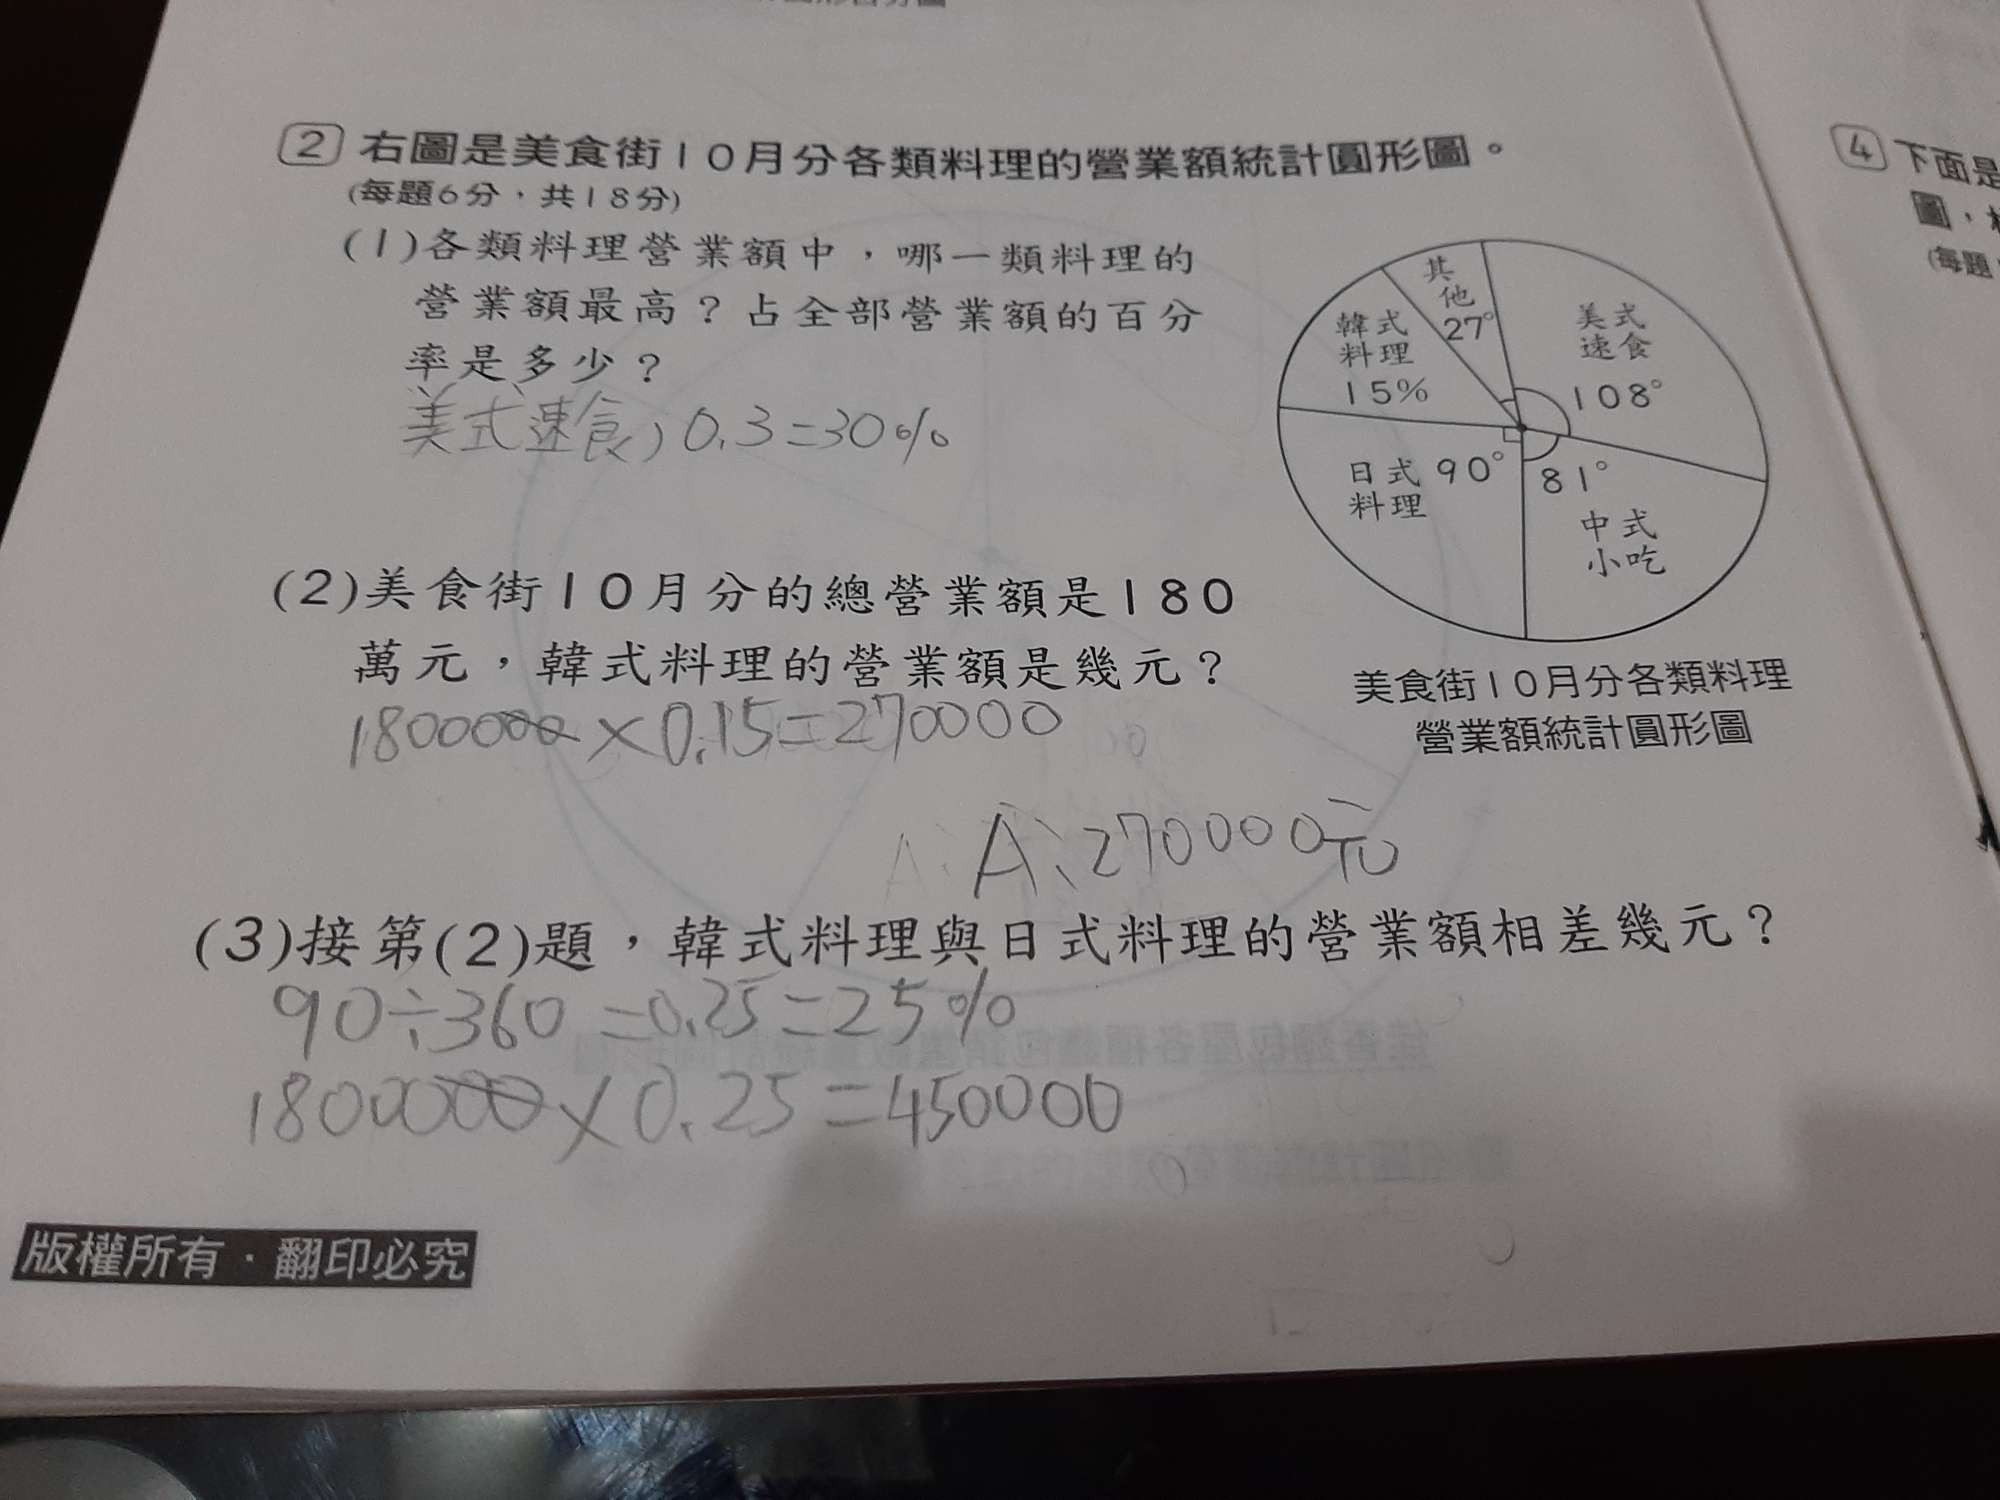 ② 右圖是美食街10月分各類料理的營業額統計圓形圖。
(每題6分，共18分)
(1)各類料理營業額中，哪一類料理的
營業額最高？占全部營業額的百分
率是多少？
美式速食，0.3=30%
其他
27°
美式
速食
108°
韓式
料理
15%
日式
料理
90°
81°
中式
小吃
美食街10月分各類料理
營業額統計圓形圖
(2)美食街10月分的總營業額是180
萬元，韓式料理的營業額是幾元？
1800000×0.15=270000
A、270000元
(3)接第(2)題，韓式料理與日式料理的營業額相差幾元？
90÷360=0.25=25%
1800000×0.25=450000
版權所有・翻印必究
④ 下面是
圖，
(每題